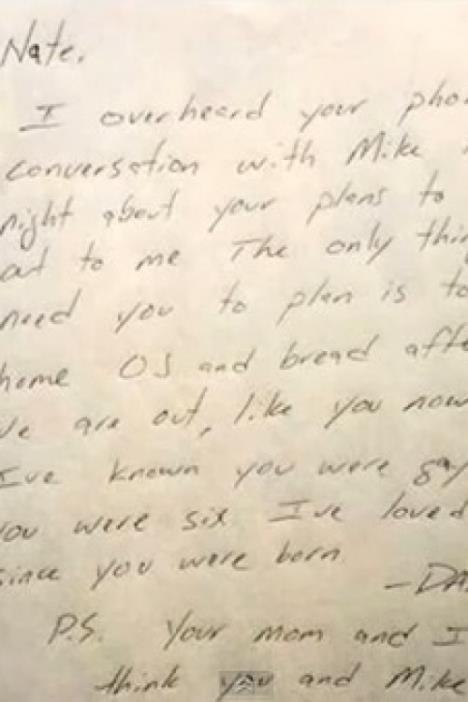 Nate,
I overheard your pho
conversation with Mike
night about your plans to
out to me The only thin
need you to plan is to
home OJ and bread afte
We are out, like you now
I've known you were gay
you were six I've loved
since you were born
-DA
P.S. Your mom and I
think you and Mike